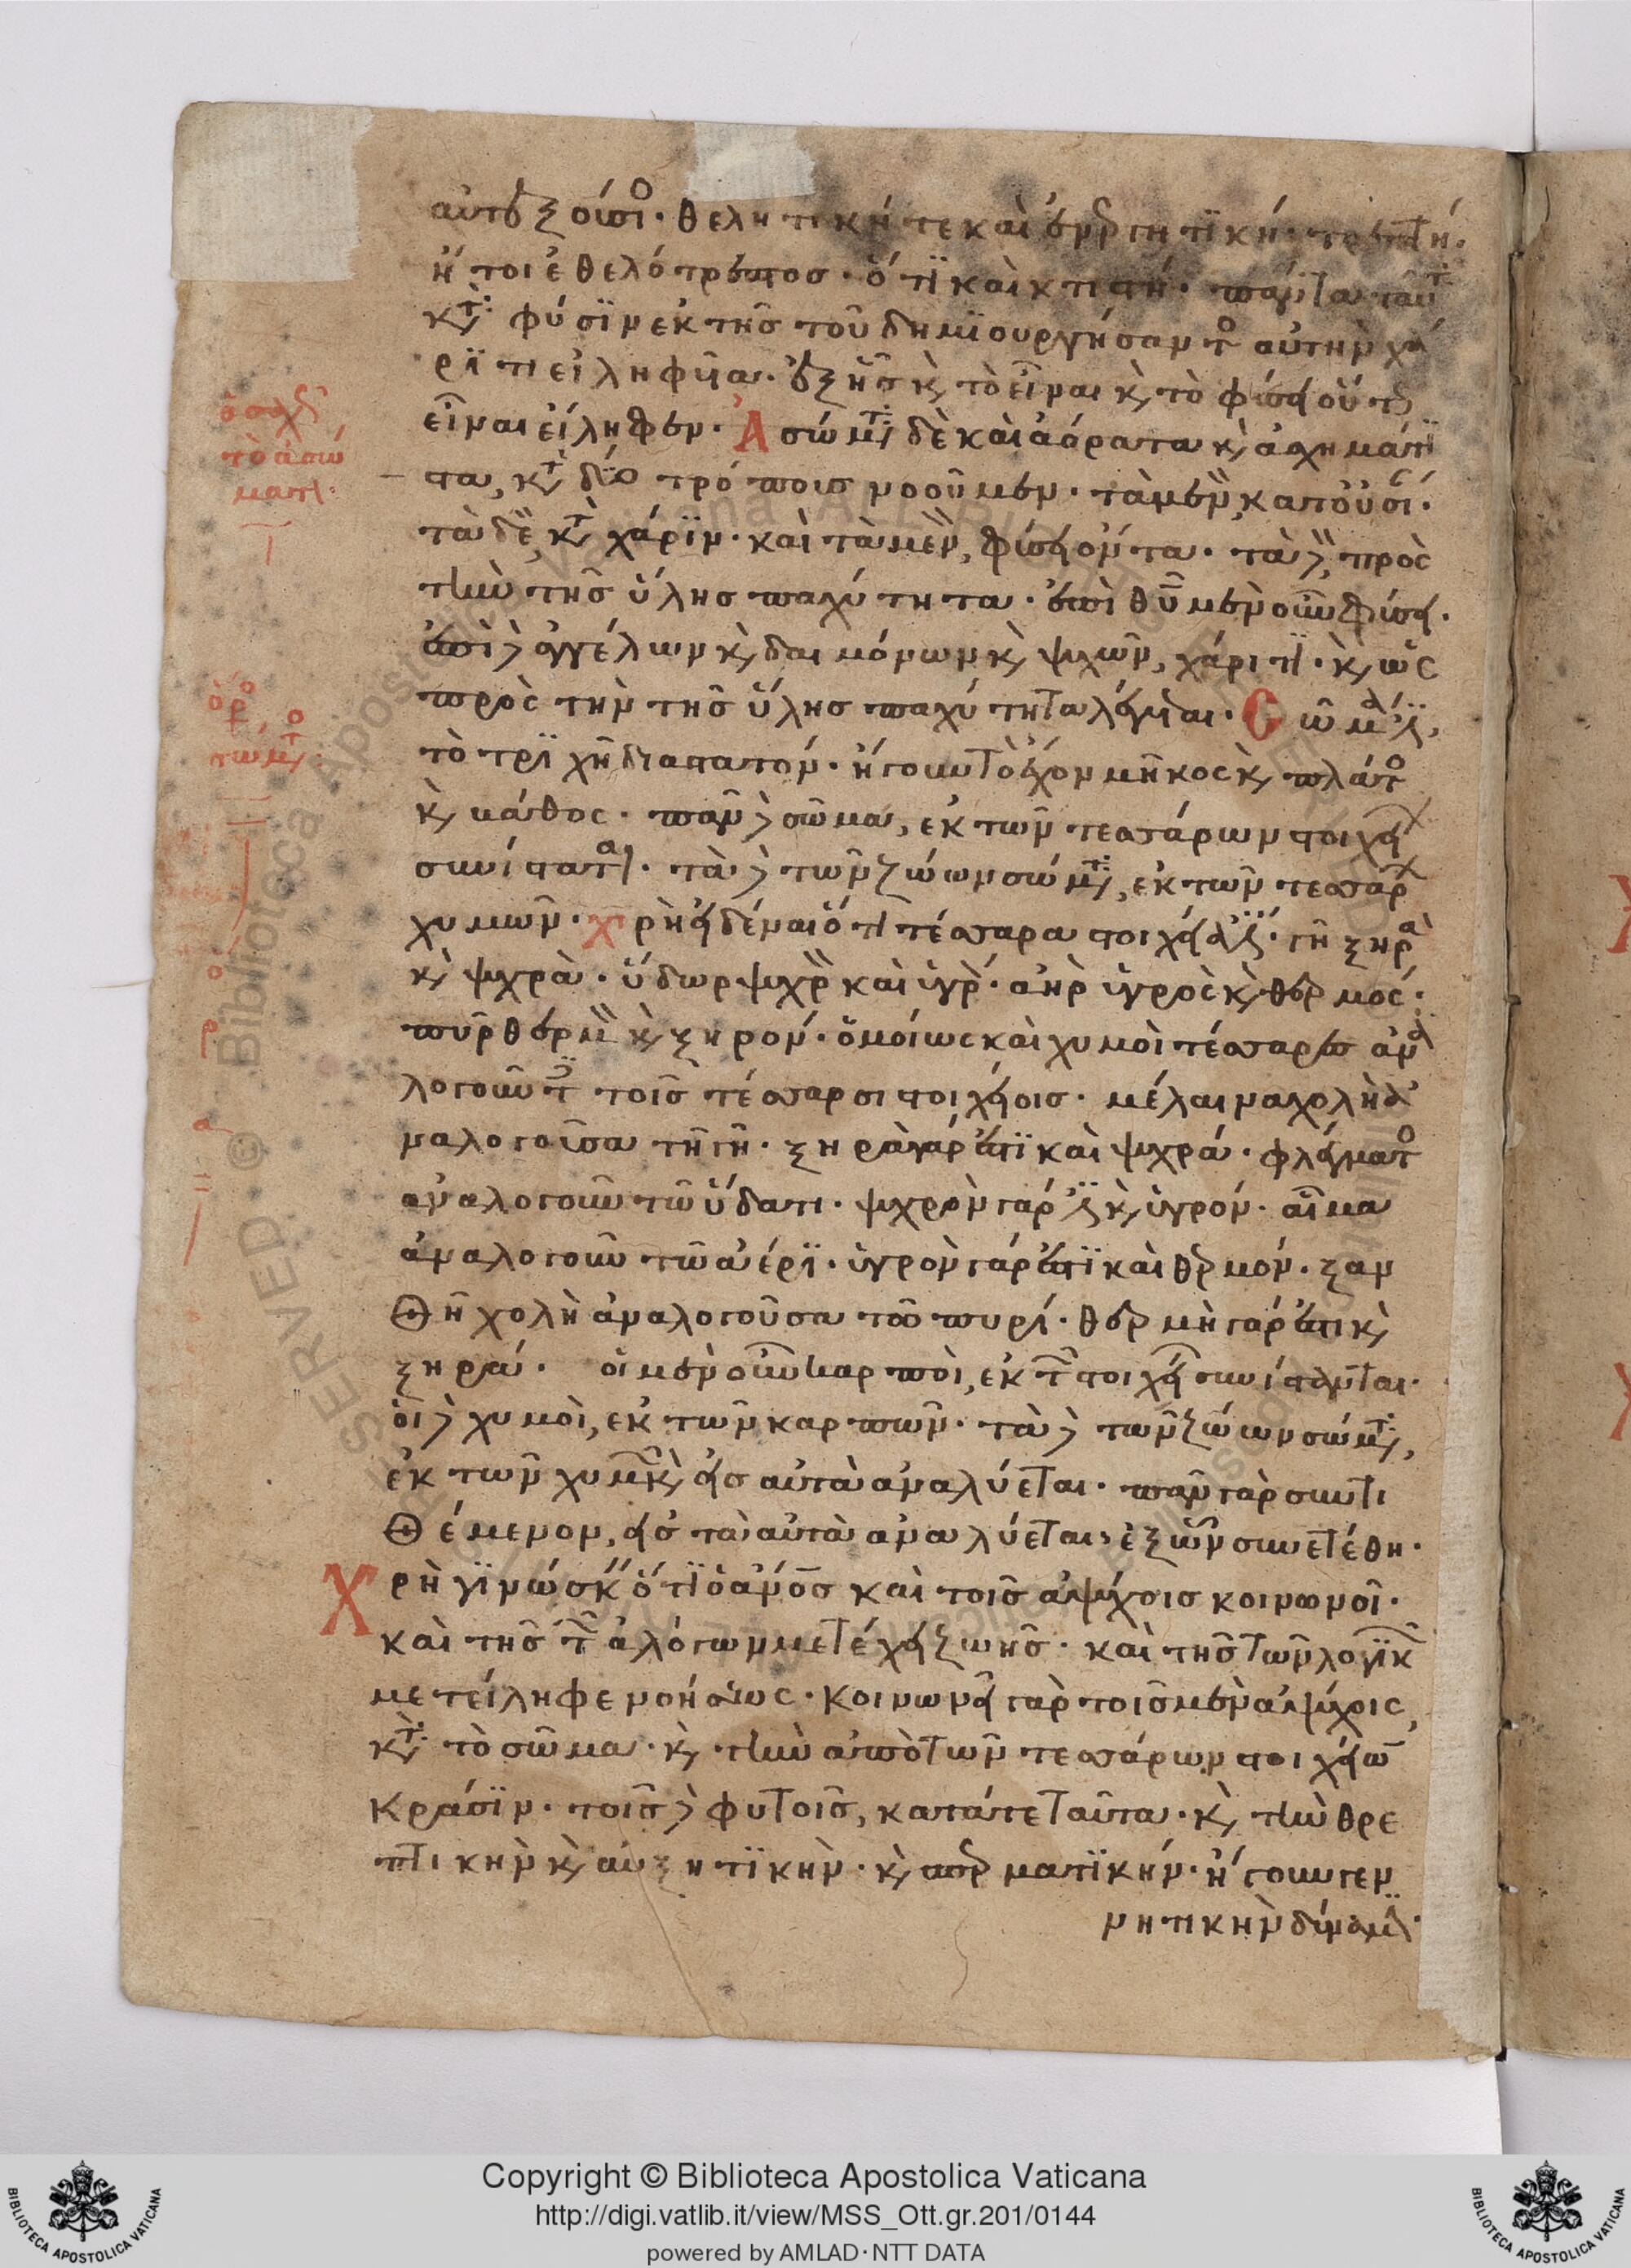 αὐτεξούσιος· θελητική τε καὶ ἐνεργητικὴ· τρεπτή·
ἤτοι ἐθελότρεπτος· ὅτι καὶ κτιστή· πάντα ταῦτα
κατὰ φύσιν ἐκ τῆς τοῦ δημιουργήσαντος αὐτὴν χά
ριτι εἰληφυῖα· ἐξ ἧς καὶ τὸ εἶναι καὶ τὸ φύσει οὕτως
εἶναι εἴληφεν· Ἀσώματα δὲ καὶ ἀόρατα καὶ ἀσχημάτι
στα, κατὰ δύο τρόπους νοοῦμεν· τὰ μὲν κατ' οὐσίαν·
τὰ δὲ κατὰ χάριν· καὶ τὰ μὲν, φύσει ὄντα· τὰ δὲ, πρὸς
τὴν τῆς ὕλης παχύτητα· ἐπὶ θεοῦ μὲν οὖν φύσει·
ἐπὶ δὲ ἀγγέλων καὶ δαιμόνων καὶ ψυχῶν, χάριτι· καὶ ὡς
πρὸς τὴν τῆς ὕλης παχύτητα λέγεται· Σῶμά ἐστι,
τὸ τριχῆ διαστατόν· ἤγουν τὸ ἔχον μῆκος καὶ πλάτος
καὶ βάθος· πᾶν δὲ σῶμα, ἐκ τῶν τεσσάρων στοιχείων
συνίσταται· τὰ δὲ τῶν ζώων σώματα, ἐκ τῶν τεσσάρων
χυμῶν· χρὴ εἰδέναι ὅτι τέσσαρα στοιχεῖά ἐστι· γῆ ξηρὰ
καὶ ψυχρὰ· ὕδωρ ψυχρὸν καὶ ὑγρὸν· ἀὴρ ὑγρὸς καὶ θερμός·
πῦρ θερμὸν καὶ ξηρόν· ὁμοίως καὶ χυμοὶ τέσσαρες ἀνα
λογοῦντες τοῖς τέσσαρσι στοιχείοις· μέλαινα χολὴ ἀ
ναλογοῦσα τῆ γῆ· ξηρὰ γάρ ἐστι καὶ ψυχρά· φλέγμα τὸ
ἀναλογοῦν τῶ ὕδατι· ψυχρὸν γάρ ἐστι καὶ ὑγρόν· αἷμα
ἀναλογοῦν τῶ ἀέρι· ὑγρὸν γάρ ἐστι καὶ θερμόν· ξαν
θὴ χολὴ ἀναλογοῦσα τῶ πυρί· θερμὴ γάρ ἐστι καὶ
ξηρά· οἱ μὲν οὖν καρποὶ, ἐκ τῶν στοιχείων συνίστανται·
οἱ δὲ χυμοὶ, ἐκ τῶν καρπῶν· τὰ δὲ τῶν ζώων σώματα,
ἐκ τῶν χυμῶν καὶ εἰς αὐτὰ ἀναλύεται· πᾶν γὰρ συντι
θέμενον, εἰς τὰ αὐτὰ ἀναλύεται, ἐξ ὧν συνετέθη·
Χρὴ γινώσκειν ὅτι ὁ ἄνθρωπος καὶ τοῖς ἀψύχοις κοινωνεῖ·
καὶ τῆς τῶν ἀλόγων μετέχει ζωῆς· καὶ τῆς τῶν λογικῶν
μετείληφε νοήσεως· κοινωνεῖ γὰρ τοῖς μὲν ἀψύχοις,
κατὰ τὸ σῶμα· καὶ τὴν ἀπὸ τῶν τεσσάρων στοιχείων
κράσιν· τοῖς δὲ φυτοῖς, κατά τε ταῦτα· καὶ τὴν θρε
πτικὴν καὶ αὐξητικὴν· καὶ σπερματικήν· ἤγουν γεν
νητικὴν δύναμιν·
Copyright © Biblioteca Apostolica Vaticana
http://digi.vatlib.it/view/MSS_Ott.gr.201/0144
powered by AMLAD·NTT DATA
BIBLIOTECA APOSTOLICA VATICANA
BIBLIOTECA APOSTOLICA VATICANA